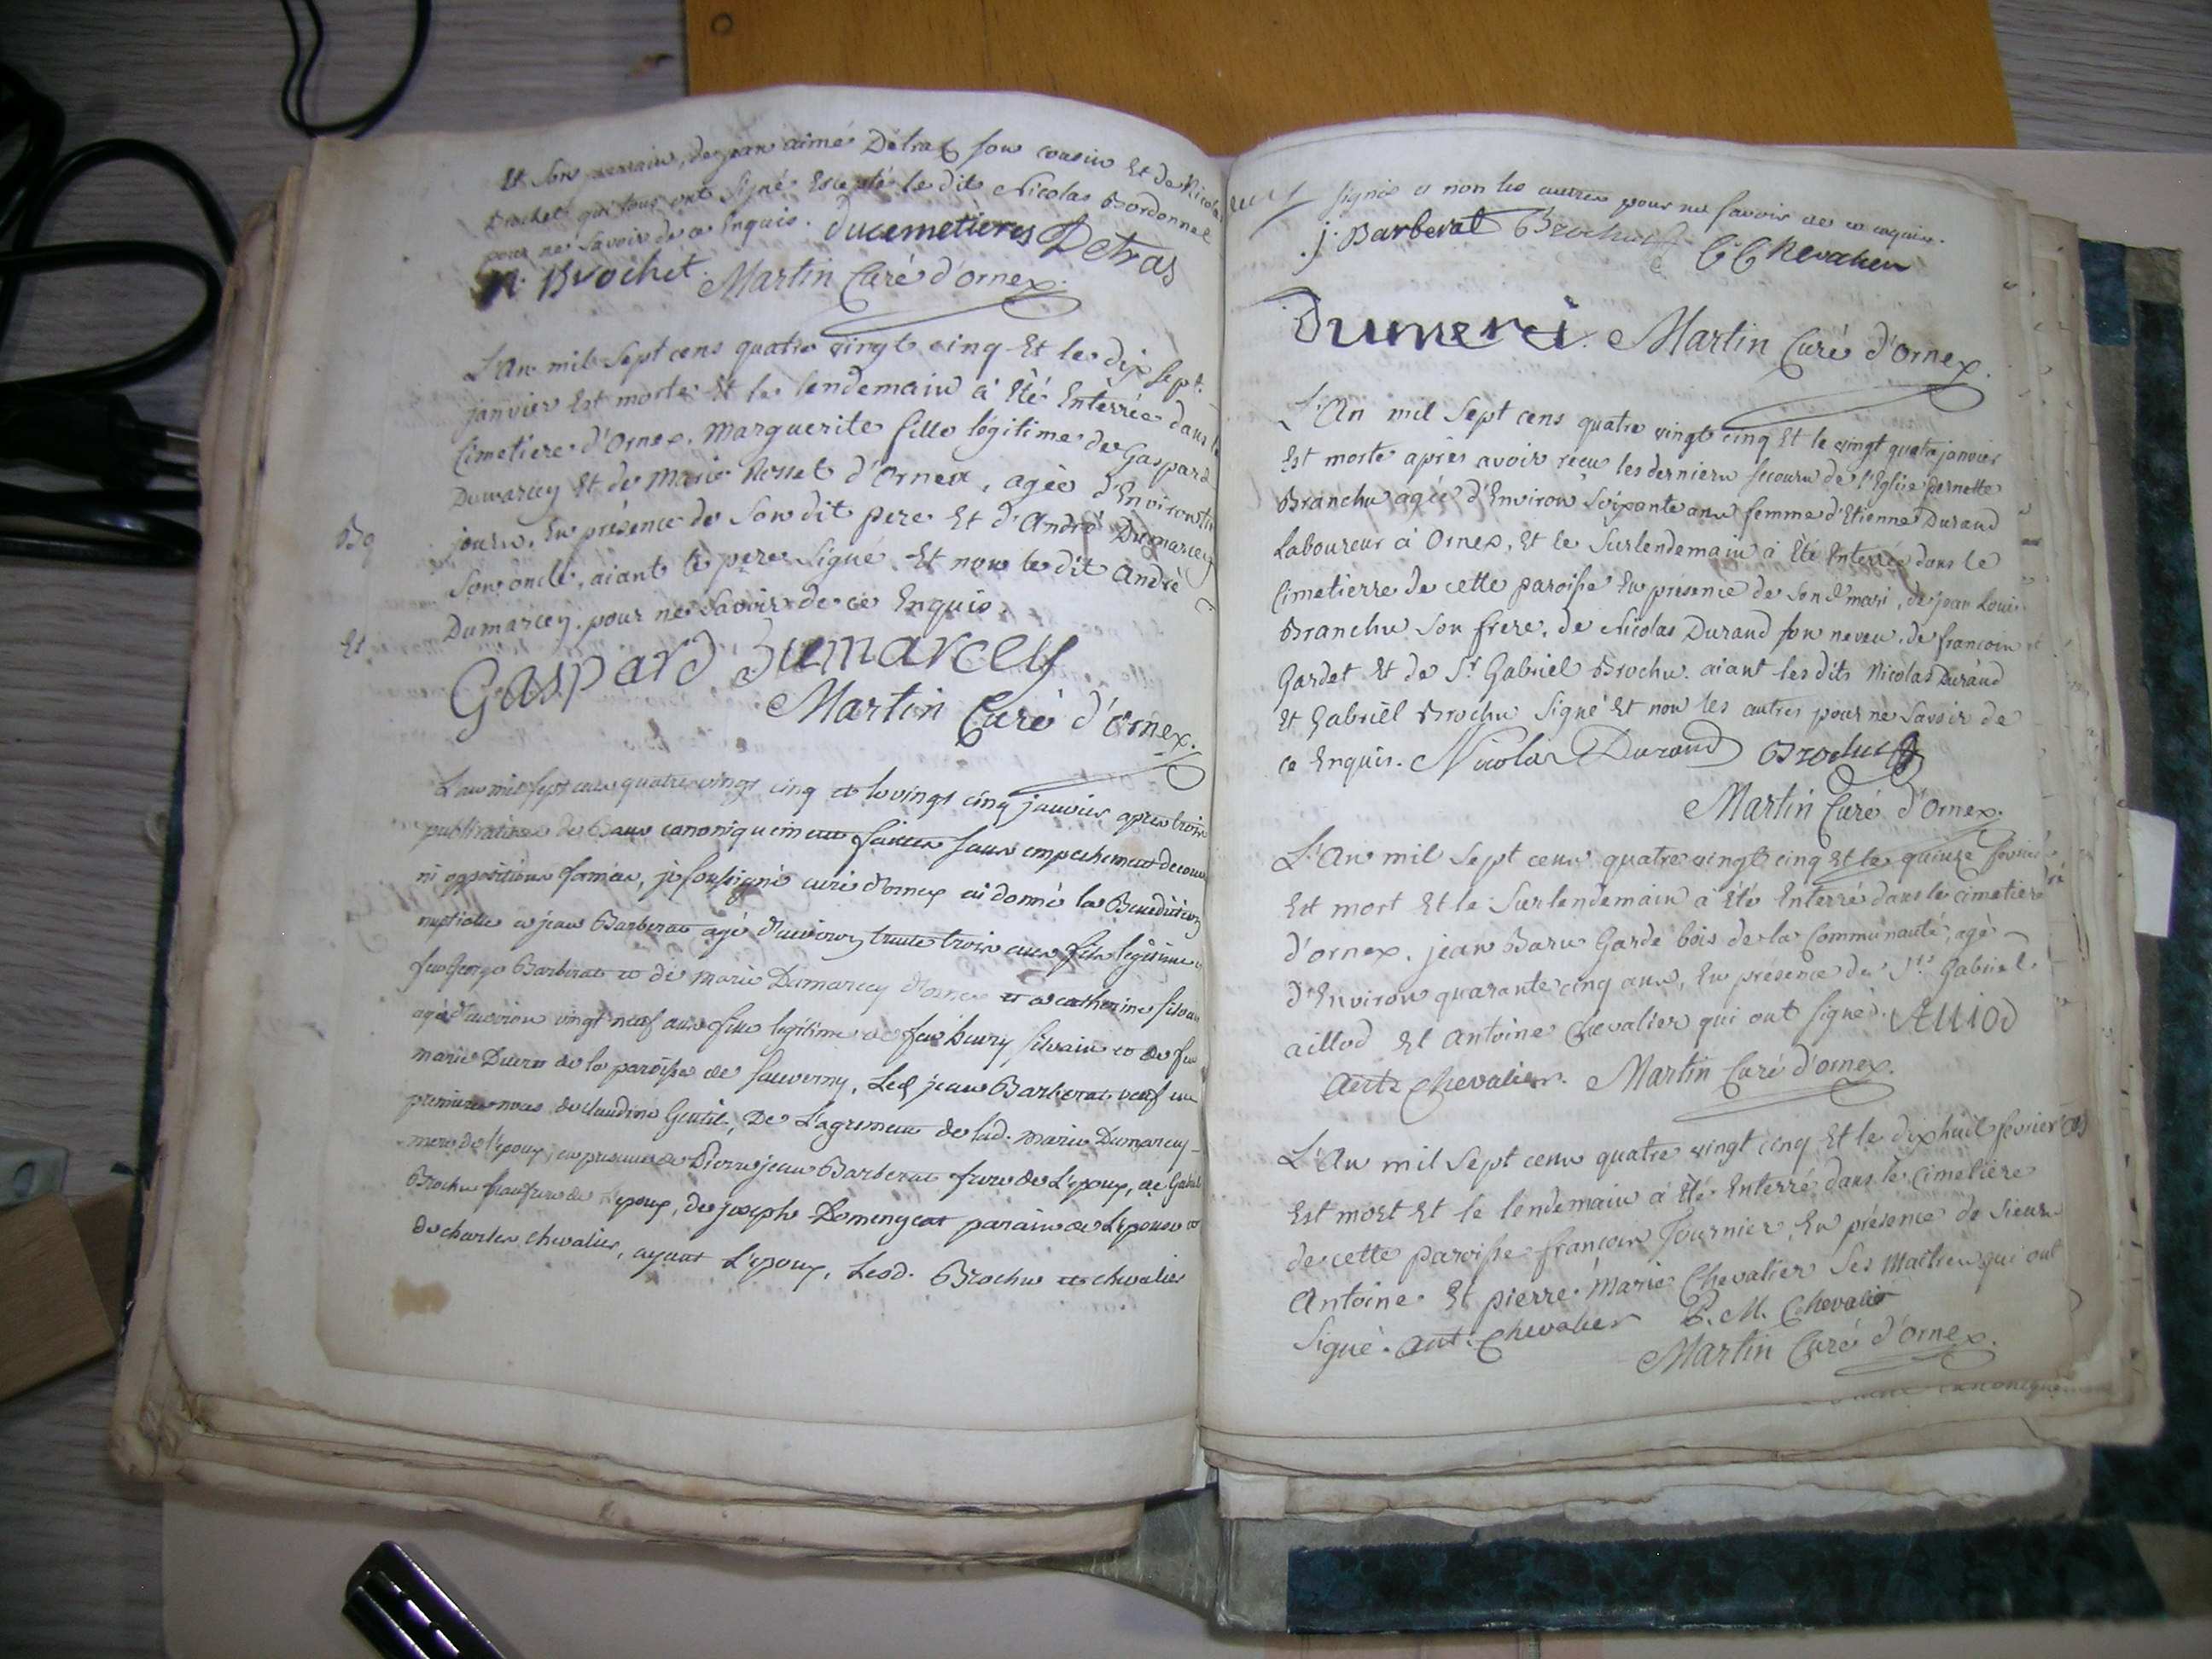 Et son parrain, de jean aimé Détraz son cousin Et de Nicolas
Brochet qui tous ont signé Excepté le dit Nicolas Bordonnel
pour ne savoir de ce Enquis. ducemetieres Detras
n. Brochet. Martin Curé d'ornex.
L'An mil Sept cens quatre vingt cinq Et le dix sept
janvier Est morte Et le lendemain à Eté Enterrée dans le
Cimetiere d'Ornex, Marguerite fille légitime de Gaspard
Dumarcey Et de Marie Rosset d'Ornex, agée d'Environ
jours, En présence de Son dit pere Et d'André Dumarcey
Son oncle, aiant le pere Signé Et non le dit André
Dumarcey. pour ne Savoir de ce Enquis.
Gaspard Dumarcey
Martin Curé d'ornex.
L'an mil sept cens quatre vingt cinq et le vingt cinq janvier après trois
publications de Bans canoniquement faites sans empechement
ni oppositions formées, je soussigné curé d'ornex ai donné la Benediction
nuptiale a jean Barberat agé d'environ trente trois ans fils legitime
feu George Barberat et de marie Dumarcey d'ornex et a catherine silvain
agée d'environ vingt neuf ans fille legitime de feu henry silvain et de feu
marie de la paroisse de sauverny, Led. jean Barberat veuf en
premieres noces de claudine Gentil, De L'agrement de lad. marie Dumarcey
mere de l'epoux, en presence de Pierre jean Barberat frere de L'epoux, de
Brochu beaufrere de l'epoux, de joseph Domengeat parain de L'epouse et
de charles chevalier, ayant L'epoux, Lesd. Brochu et chevalier
signé et non les autres pour ne savoir de ce enquis.
j. Barberat Brochu C Chevalier
Dumerci. Martin Curé d'Ornex.
L'An mil Sept cens quatre vingt cinq Et le vingt quatre janvier
Est morte après avoir reçu les derniers secours de l'Eglise Pernette
Branchu agée d'Environ Soixante ans femme d'Etienne Durand
Laboureur à Ornex, Et le Surlendemain à Eté Enterrée dans le
Cimetierre de cette paroisse En présence de Son d. mari, de jean Louis
Branchu Son frere, de Nicolas Durand son neveu, de francois
Gardet Et de Sr. Gabriel Brochu. aiant les dits Nicolas Durand
Et Gabriel Brochu Signé Et non les autres pour ne Savoir de
ce Enquis. Nicolas Durand Brochu
Martin Curé d'Ornex.
L'An mil Sept cens quatre vingt cinq Et le quinze fevrier
Est mort Et le Surlendemain à Eté Enterré dans le cimetiere
d'ornex, jean Garde bois de la Communauté, agé
d'Environ quarante cinq ans, En présence de Srs. Gabriel
aillod Et Antoine Chevalier qui ont signé. Alliod
Chevalier. Martin Curé d'ornex.
L'An mil Sept cens quatre vingt cinq Et le dix huit fevrier
Est mort Et le lendemain à Eté Enterré dans le cimetiere
de cette paroisse francois Fournier, En présence de Sieurs
Antoine Et pierre Marie Chevalier Ses Maitres qui ont
Signé. ant. Chevalier P. M. Chevalier
Martin Curé d'ornex.